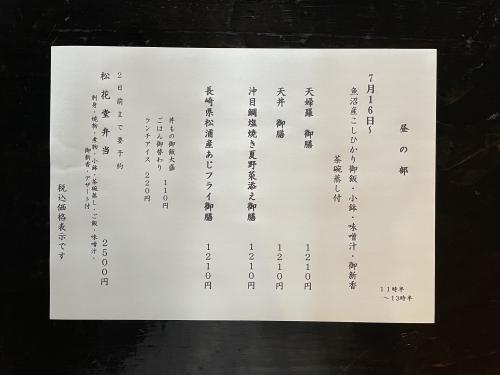 昼の部
11時半
～13時半
7月16日～
魚沼産こしひかり御飯・小鉢・味噌汁・御新香
茶碗蒸し付
天婦羅 御膳 1210円
天丼 御膳 1210円
沖目鯛塩焼き夏野菜添え御膳 1210円
長崎県松浦産あじフライ御膳 1210円
丼もの御飯大盛 110円
ごはん御替わり
ランチアイス 220円
2日前まで要予約
松花堂弁当 2500円
刺身・焼物・煮物・小鉢・茶碗蒸し・ご飯・味噌汁・
御新香・デザート付
税込価格表示です